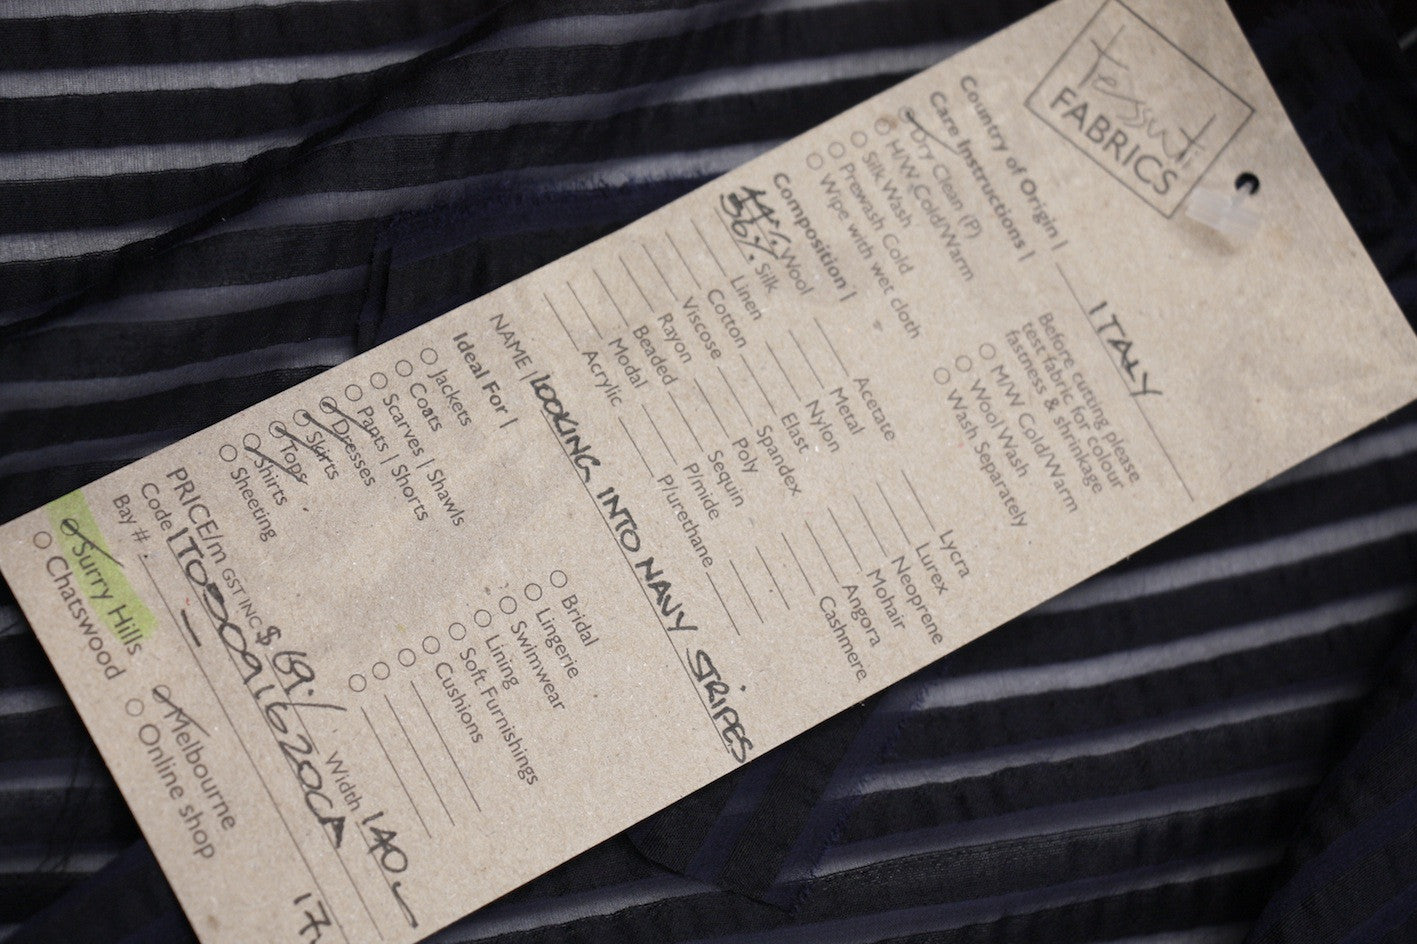 Tessuti
FABRICS
Country of Origin | ITALY
Care Instructions |
Dry Clean (P)
H/W Cold/Warm
Silk Wash
Prewash Cold
Wipe with wet cloth
Before cutting please
test fabric for colour
fastness & shrinkage
M/W Cold/Warm
Wool Wash
Wash Separately
Composition |
44% Wool
56% Silk
Linen
Cotton
Viscose
Rayon
Beaded
Modal
Acrylic
Acetate
Metal
Nylon
Elast
Spandex
Poly
Sequin
P/mide
P/urethane
Lycra
Lurex
Neoprene
Mohair
Angora
Cashmere
NAME | LOOKING INTO NAVY STRIPES
Ideal For |
Jackets
Coats
Scarves | Shawls
Pants | Shorts
Dresses
Skirts
Tops
Shirts
Sheeting
Bridal
Lingerie
Swimwear
Lining
Soft Furnishings
Cushions
PRICE/m GST INC $ 69 Width 140
Code
Bay #
Surry Hills
Chatswood
Melbourne
Online shop